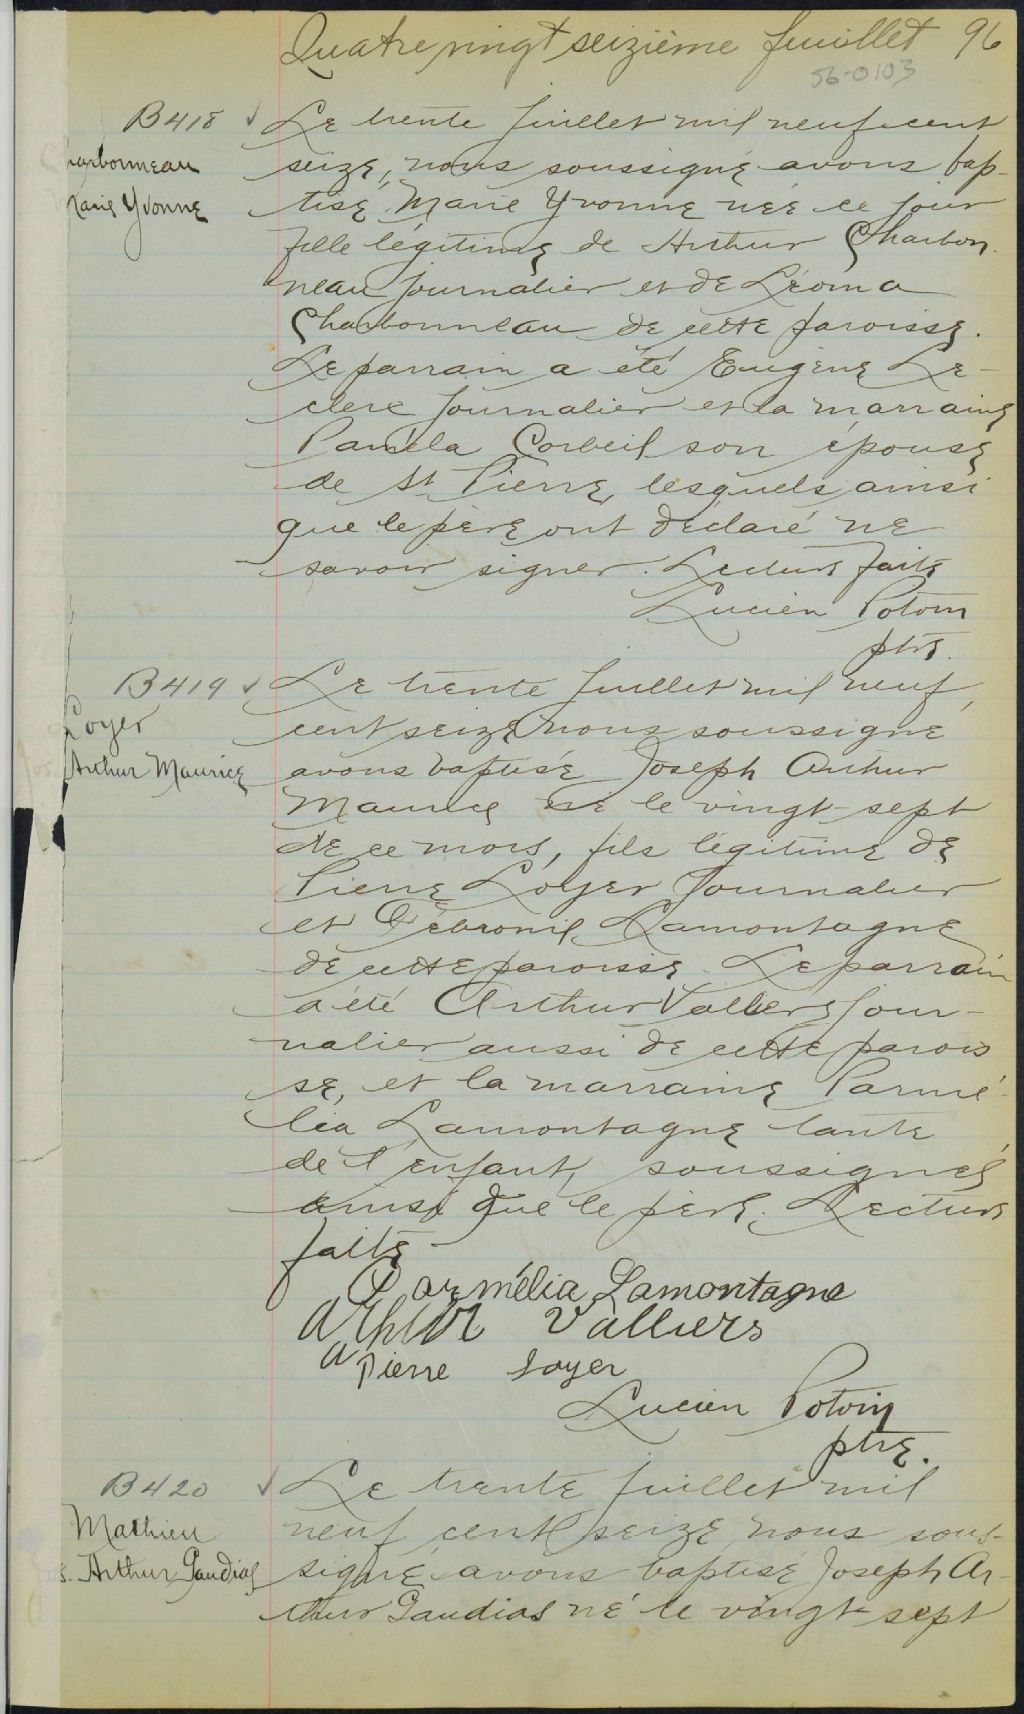 Quatre vingt seizième feuillet 96
56-0103
B418
Charbonneau
Marie Yvonne
Le trente juillet mil neuf cent
seize, nous soussigné avons bap-
tisé Marie Yvonne née ce jour
fille légitime de Arthur Charbon-
neau journalier et de Léoma
Charbonneau de cette paroisse.
Le parrain a été Eugène Le-
clerc journalier et la marraine
Paméla Corbeil son épouse
de St Pierre, lesquels ainsi
que le père ont déclaré ne
savoir signer. Lecture faite
Lucien Potvin
ptre.
B419
Loyer
Jos. Arthur Maurice
Le trente juillet mil neuf
cent seize nous soussigné
avons baptisé Joseph Arthur
Maurice né le vingt-sept
de ce mois, fils légitime de
Pierre Loyer journalier
et Fébronil Lamontagne
de cette paroisse. Le parrain
a été Arthur Valliers jour-
nalier aussi de cette parois
se, et la marraine Parmé-
lia Lamontagne tante
de l'enfant, soussignés
ainsi que le père. Lecture
faite
Parmélia Lamontagne
Arthur Valliers
Pierre Loyer
Lucien Potvin
ptre.
B420
Mathieu
Jos. Arthur Gaudias
Le trente juillet mil
neuf cent seize nous sous-
signé avons baptisé Joseph Ar-
thur Gaudias né le vingt-sept